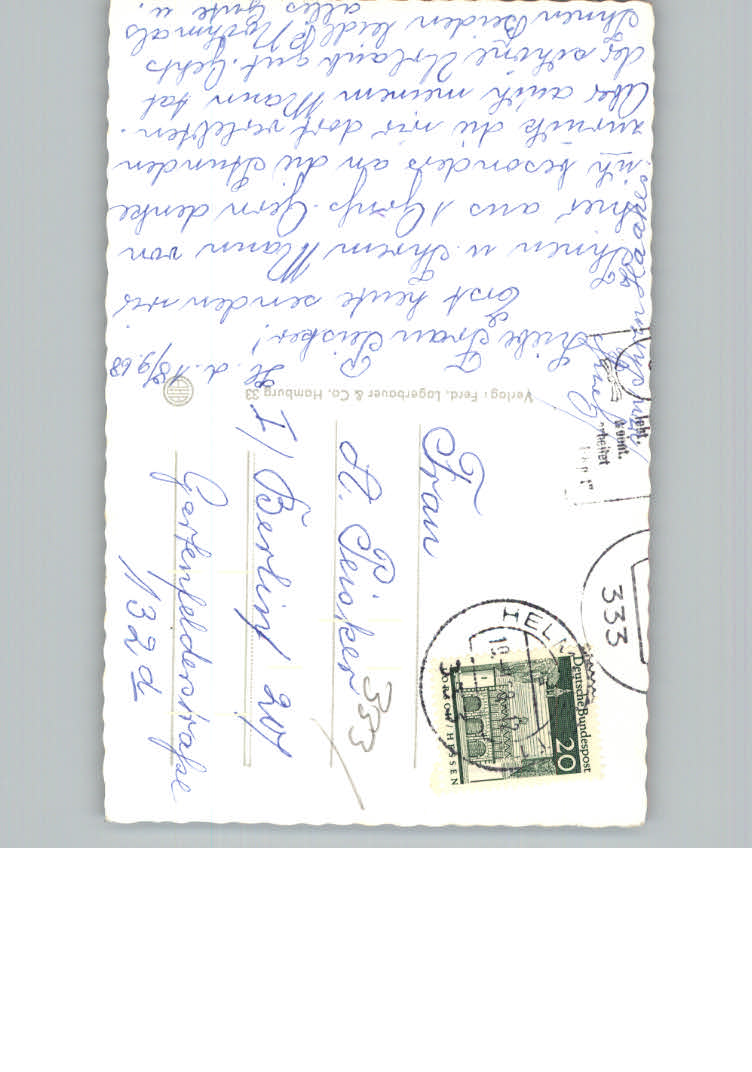 H. d. 18/9.68
Liebe Frau Peisker!
Erst heute senden wir
Ihnen u. Ihrem Mann von
hier aus Grüße. Gern denke
ich besonders an die Stunden
zurück die wir dort verlebten.
Aber auch meinem Mann tat
der schöne Urlaub gut. Gehts
Ihnen Beiden leidl? Nochmals
alles Gute u.
Verlag: Ferd. Lagerbauer & Co. Hamburg 33
Frau
H. Peisker
333
1/ Berlin 20
Gartenfelderstraße
132d
Deutsche Bundespost
20
HESSEN
HELM
333